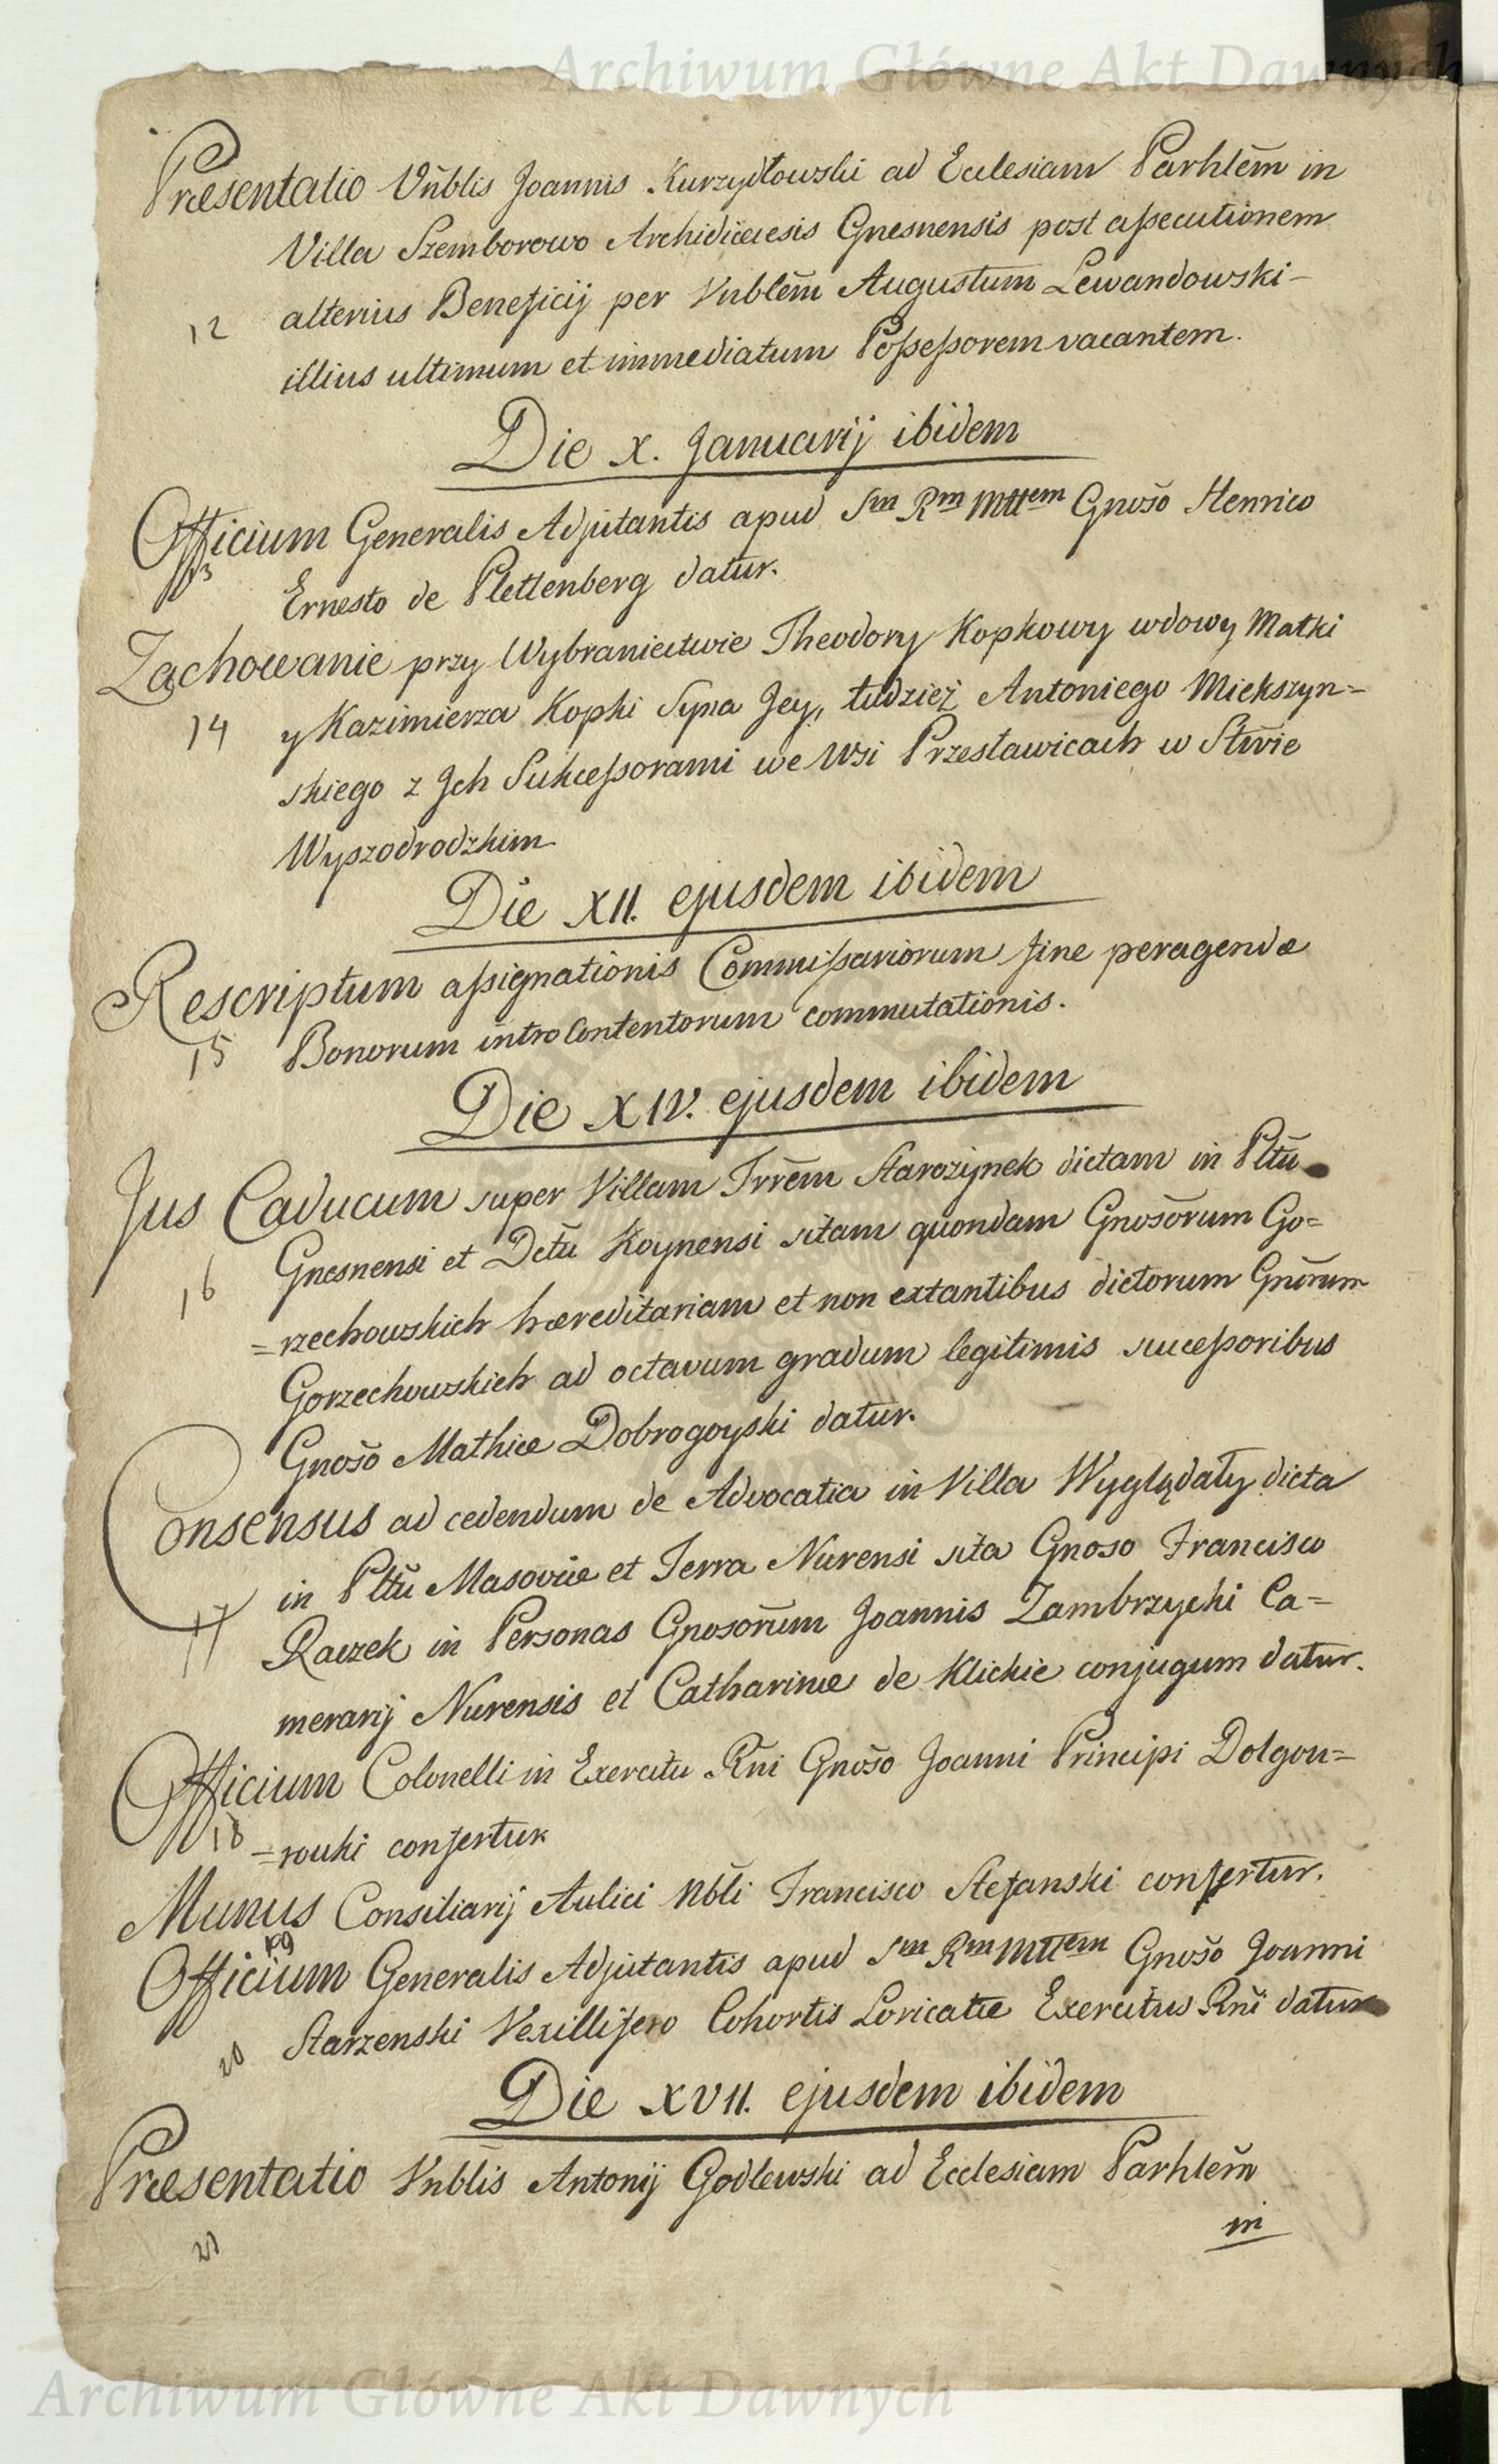 Archiwum Główne Akt Dawnych
Præsentatio Vñblis Joannis Kurzydłowski ad Ecclesiam Parhlẽm in
Villa Szemborowo Archidiœcesis Gnesnensis post aſsecutionem
alterius Beneficij per Vnblẽm Augustum Lewandowski-
12
illius ultimum et immediatum Poſseſsorem vacantem.
Die X. Januarij ibidem
Officium Generalis Adjutantis apud Sm Rm Mttem Gnoso Henrico
13
Ernesto de Plettenberg datur.
Zachowanie przy Wybraniectwie Theodory Kopkowy wdowy Matki
14 y Kazimierza Kopki Syna Jey, tudzież Antoniego Miekszyn=
skiego z Jch Sukceſsorami we Wsi Przesławicach w Stwie
Wyszodrodzkim
Die XII. ejusdem ibidem
Rescriptum aſsignationis Commiſsariorum fine peragendæ
15 Bonorum introContentorum commutationis.
Die XIV. ejusdem ibidem
Jus Caducum super Villam Trrẽm Starozynek dictam in Pltũ
16 Gnesnensi et Dctũ Koynensi sitam quondam Gnosõrum Go=
=rzechowskich hæreditariam et non extantibus dictorum Gnõrum
Gorzechowskich ad octavum gradum legitimis succeſsoribus
Gnoso Mathiæ Dobrogoyski datur.
Consensus ad cedendum de Advocatia in Villa Wyglądały dicta
in Pltũ Masoviæ et Terra Nurensi sita Gnoso Francisco
17 Raczek in Personas Gnosorũm Joannis Zambrzycki Ca=
merarij Nurensis et Catharinæ de Klickie conjugum datur.
Officium Colonelli in Exercitu Rñi Gnoso Joanni Principi Dolgou=
18 =rouki confertur
Munus Consiliarij Aulici Nbli Francisco Stefanski confertur.
19
Officium Generalis Adjutantis apud Sm Rm Mttem Gnoso Joanni
20 Starzenski Vexillifero Cohortis Loricatæ Exercitus Rñi datur
Die XVII. ejusdem ibidem
Præsentatio Vnblis Antonij Godlewski ad Ecclesiam Parhlẽm
21
in
Archiwum Główne Akt Dawnych